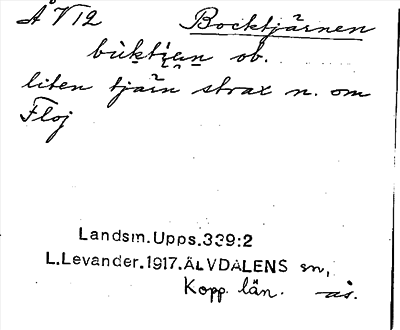 Å V 12 Bocktjärnen
bùkt'ịạṇ ob.
liten tjärn strax n. om
Floj
Landsm.Upps.339:2
L.Levander.1917.ÄLVDALENS sn,
Kopp. län. ås.